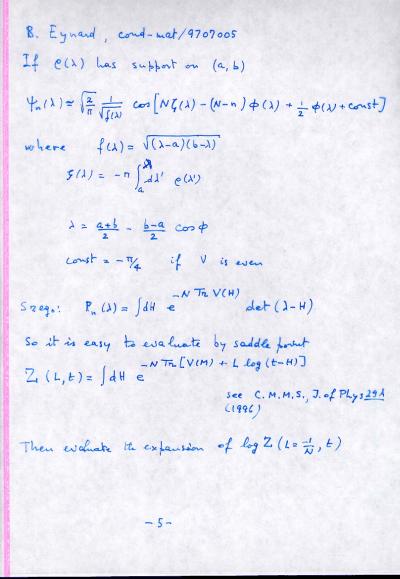 B. Eynard, cond-mat/9707005
If ρ(λ) has support on (a, b)
ψ_n(λ) ≃ √(2/π) 1/√f(λ) cos[Nζ(λ) - (N-n) φ(λ) + 1/2 φ(λ) + const]
where f(λ) = √((λ-a)(b-λ))
ζ(λ) = -π ∫_a^λ dλ' ρ(λ')
λ = (a+b)/2 - (b-a)/2 cos φ
const = -π/4 if V is even
Szego: P_n(λ) = ∫dH e^{-N Tr V(H)} det(λ-H)
So it is easy to evaluate by saddle point
Z(L,t) = ∫dH e^{-N Tr[V(M) + L log(t-H)]}
see C.M.M.S., J. of Phys 29A
(1996)
Then evaluate the expansion of log Z(L = 1/N, t)
-5-